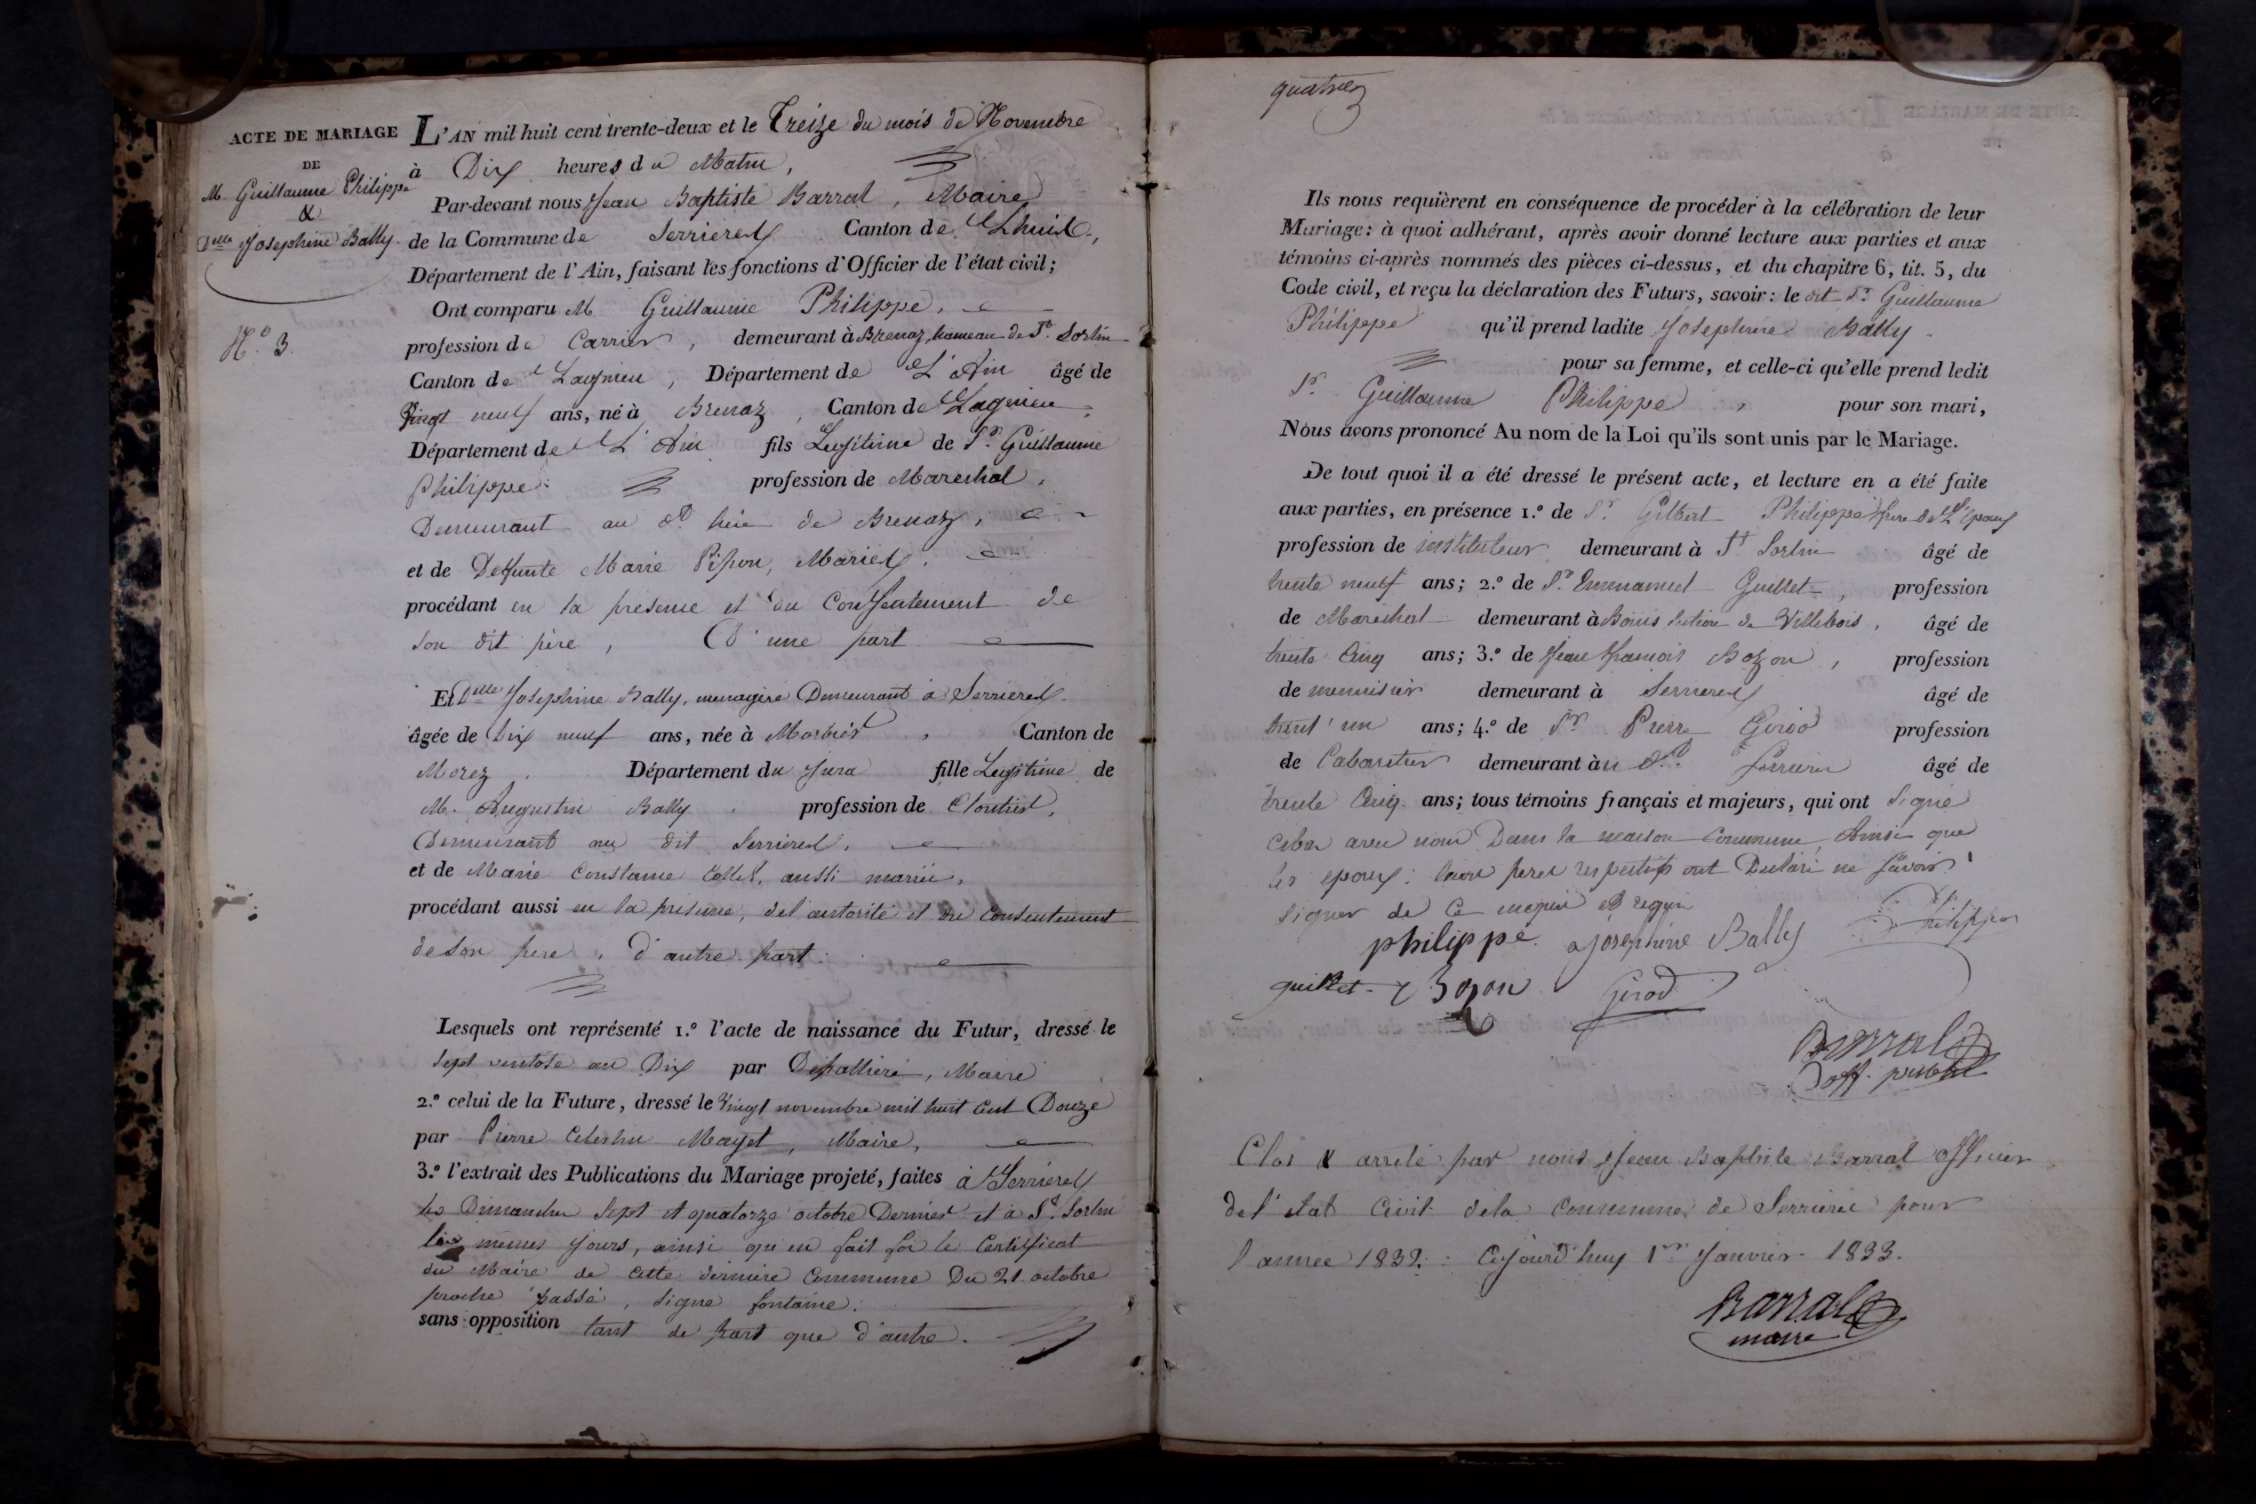 ACTE DE MARIAGE
DE
M. Guillaume Philippe
&
Delle Josephine Bally.
N.o 3.
L'AN mil huit cent trente-deux et le Treize du mois de Novembre
à Dix heures du Matin,
Par-devant nous Jean Baptiste Barral, Maire
de la Commune de Serrieres Canton de Lhuis,
Département de l'Ain, faisant les fonctions d'Officier de l'état civil;
Ont comparu M. Guillaume Philippe,
profession de Carrier, demeurant à Brenaz, hameau de St. Sorlin
Canton de Lagnieu, Département de L'Ain âgé de
Vingt neuf ans, né à Brenaz, Canton de Lagnieu,
Département de L'Ain fils Legitime de Sr. Guillaume
Philippe profession de Marechal,
Demeurant au dt lieu de Brenaz,
et de Defunte Marie Mariés.
procédant en la presence et du Consentement de
son dit père, D'une part
Et Delle Josephine Bally, menagère Demeurant à Serrieres.
âgée de Dix neuf ans, née à Morbier, Canton de
Morez. Département du Jura fille Legitime de
M. Augustin Bally. profession de Cloutier,
Demeurant au dit Serrieres,
et de Marie Constance aussi mariés,
procédant aussi en la presence, de l'autorité et du Consentement
de son pere, d'autre part.
Lesquels ont représenté 1.o l'acte de naissance du Futur, dressé le
sept ventose an Dix par Maire
2.o celui de la Future, dressé le Vingt novembre mil huit cent Douze
par Pierre Celestin Mayet, Maire,
3.o l'extrait des Publications du Mariage projeté, faites à Serrieres
les Dimanches Sept et quatorze octobre Dernier et à St. Sorlin
les memes Jours, ainsi qu'en fait foi le Certificat
du Maire de cette derniere Commune Du 21 octobre
proche passé, signé fontaine.
sans opposition tant de part que d'autre.
quatre
Ils nous requièrent en conséquence de procéder à la célébration de leur
Mariage: à quoi adhérant, après avoir donné lecture aux parties et aux
témoins ci-après nommés des pièces ci-dessus, et du chapitre 6, tit. 5, du
Code civil, et reçu la déclaration des Futurs, savoir: le dit Sr. Guillaume
Philippe qu'il prend ladite Josephine Bally
pour sa femme, et celle-ci qu'elle prend ledit
Sr. Guillaume Philippe, pour son mari,
Nous avons prononcé Au nom de la Loi qu'ils sont unis par le Mariage.
De tout quoi il a été dressé le présent acte, et lecture en a été faite
aux parties, en présence 1.o de Sr. Gilbert Philippe frere de L'époux
profession de instituteur demeurant à St Sorlin âgé de
trente neuf ans; 2.o de Sr. Emmanuel Guillet, profession
de Marechal demeurant à Bouis section de Villebois, âgé de
trente Cinq ans; 3.o de Jean François Bozon, profession
de menuisier demeurant à Serrieres âgé de
trent'un ans; 4.o de Sr Pierre Girod profession
de Cabaretier demeurant au dt. Serrieres âgé de
trente Cinq ans; tous témoins français et majeurs, qui ont signé
avec nous Dans la maison Commune, Ainsi que
les epoux: leurs peres respectifs ont Declaré ne savoir
signer de ce enquis et requis
philippe josephine Bally Philippe
guillet Bozon Girod
Barral
off. public
Clos & arrêté par nous Jean Baptiste Barral officier
de l'état Civil de la Commune de Serrieres pour
l'année 1832. Cejourd'huy 1er Janvier 1833.
Barral
maire